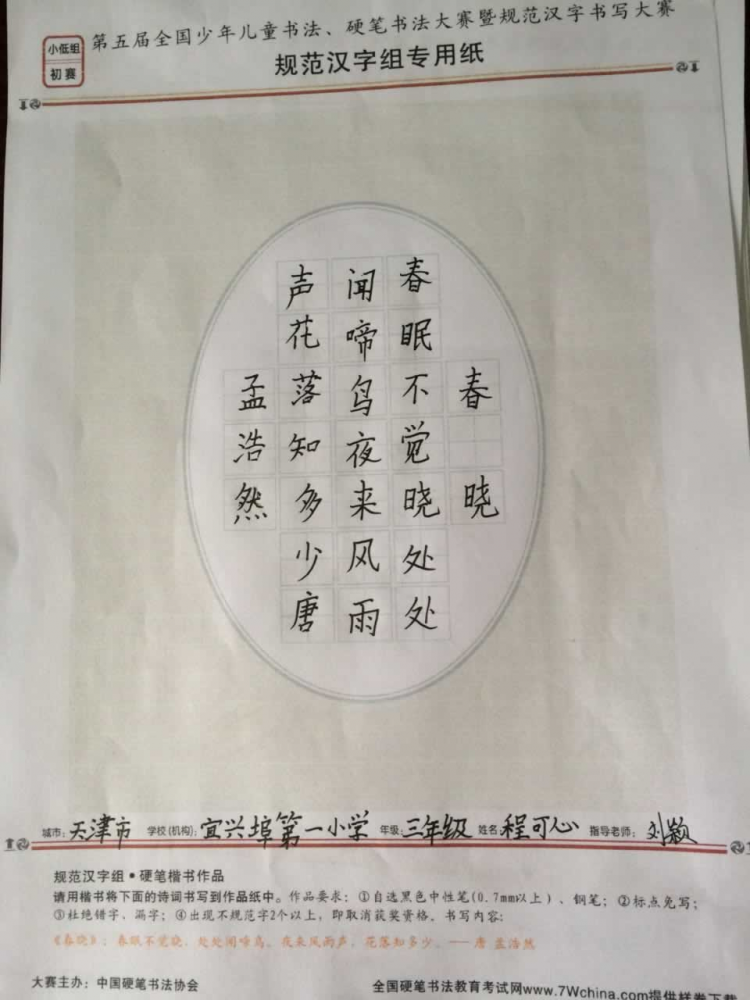 小低组
初赛
第五届全国少年儿童书法、硬笔书法大赛暨规范汉字书写大赛
规范汉字组专用纸
春晓
春眠不觉晓处处
闻啼鸟夜来风雨
声花落知多少唐
孟浩然
城市：天津市 学校(机构)：宜兴埠第一小学 年级：三年级 姓名：程可心 指导老师：刘颖
规范汉字组•硬笔楷书作品
请用楷书将下面的诗词书写到作品纸中。作品要求：①自选黑色中性笔(0.7mm以上)、钢笔；②标点免写；
③杜绝错字、漏字；④出现不规范字2个以上，即取消获奖资格。书写内容：
《春晓》：春眠不觉晓，处处闻啼鸟。夜来风雨声，花落知多少。——唐 孟浩然
大赛主办：中国硬笔书法协会 全国硬笔书法教育考试网www.7Wchina.com提供样卷下载